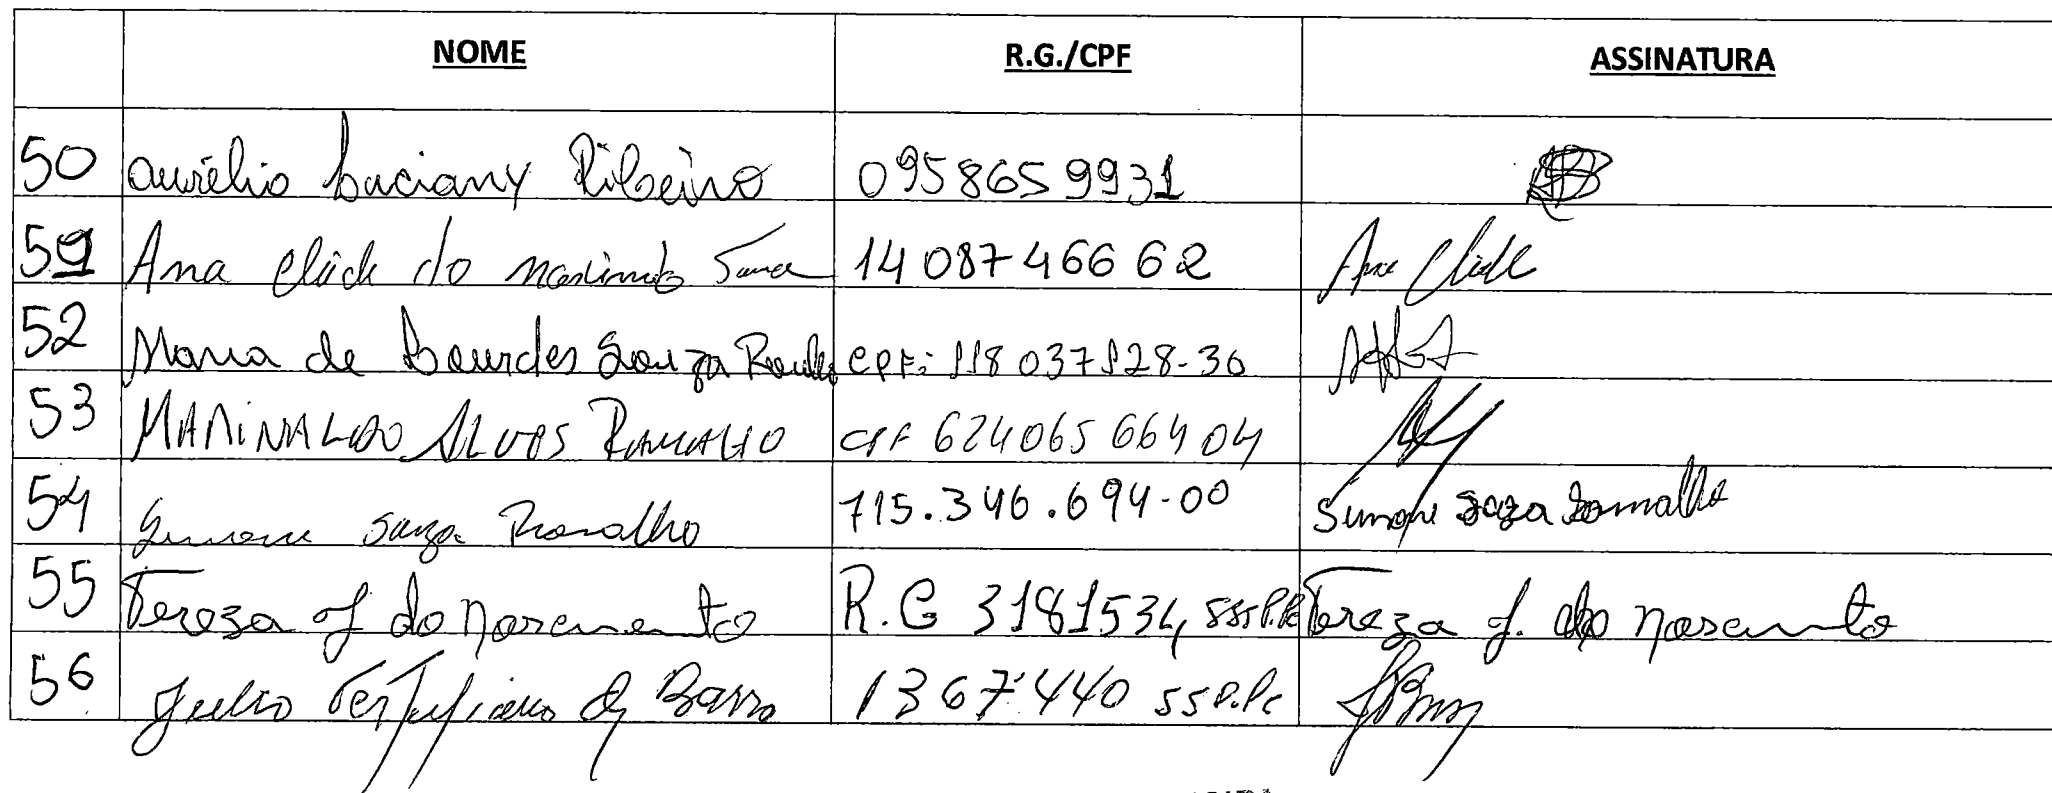 NOME R.G./CPF ASSINATURA
50 Aurélio Luciany Ribeiro 0958659931
59 Ana Clide do Souza 14087466 62 Ana Clide
52 Maria de Lourdes Souza CPF: 118 037128-36
53 MARINALDO ALVES RAMALHO CPF 624065 664 04
54 Simone Souza Ramalho 715.346.694-00 Simone Souza Ramalho
55 Tereza J do Nascimento R.G 3181534 SSP.PE Tereza J. do Nascimento
56 Julio Tertuliano de Barro 1367440 SSP.PE